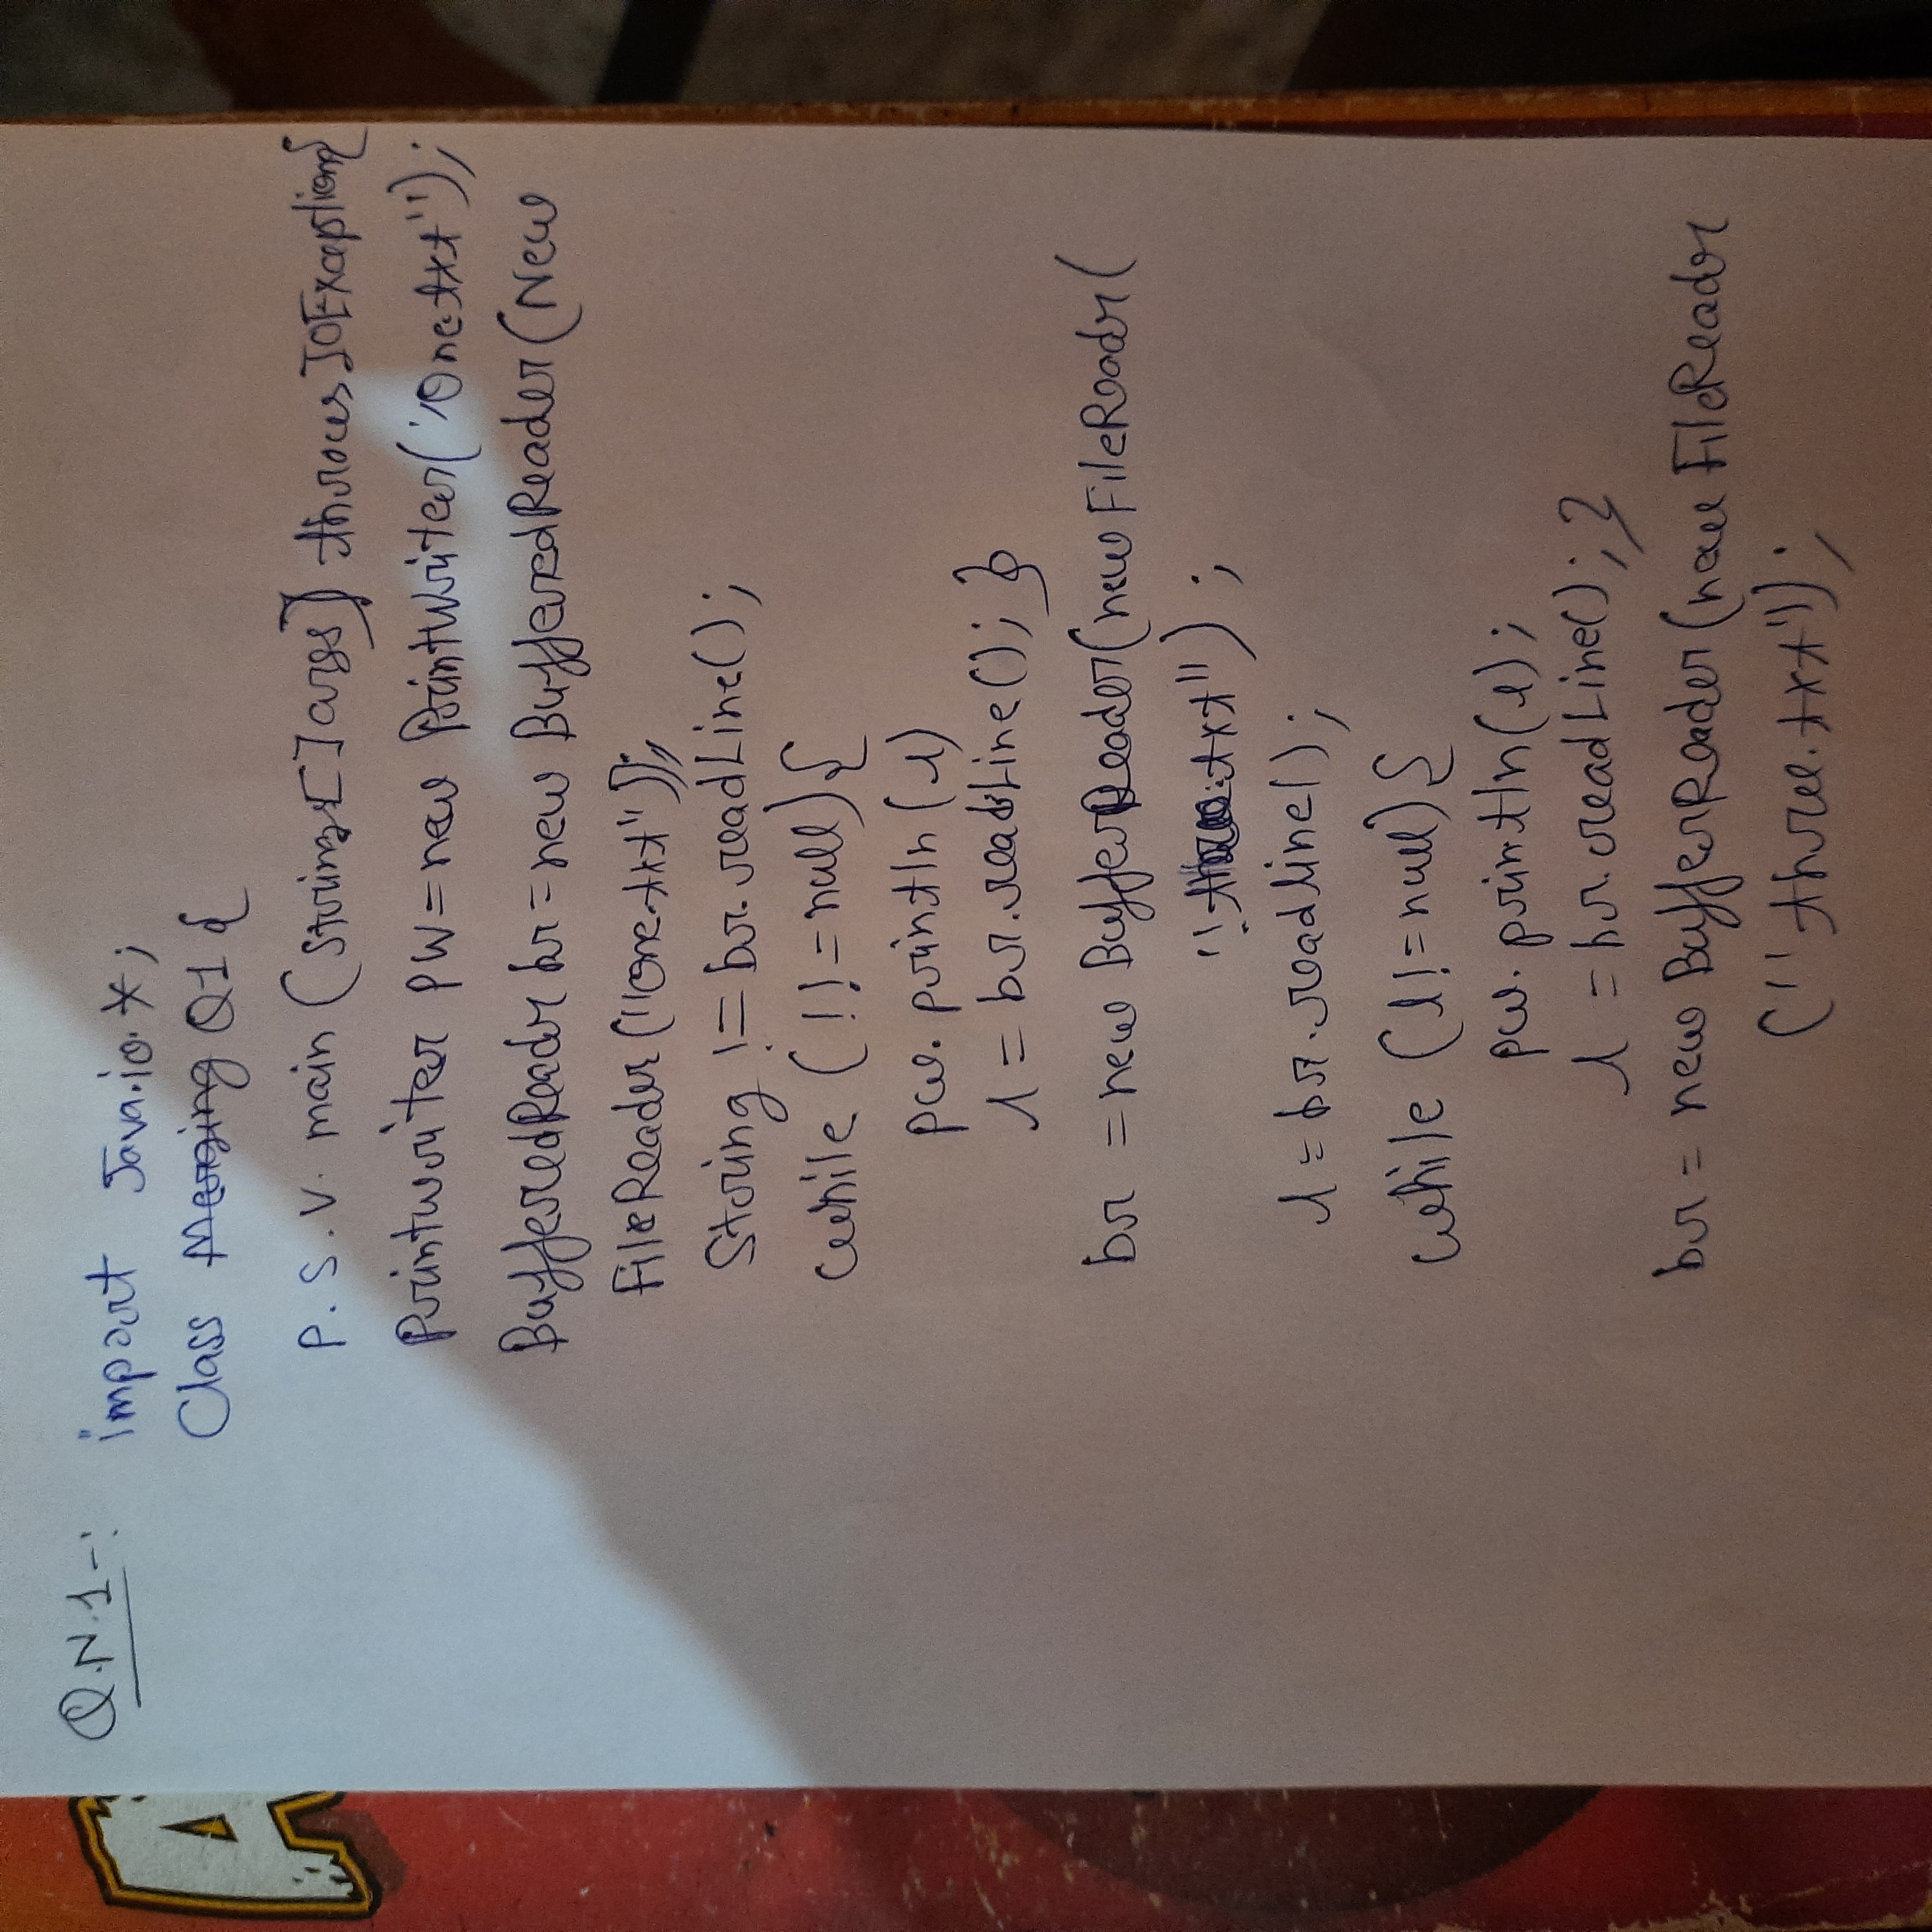 A
Q.N.1-:
import Java.io.*;
Class Merging Q1 {
P. S. V. main (String[] args) throws IOException{
Printwriter pw = new PrintWriter("One.txt");
BufferedReadr br = new BufferedReader(New
FileReader("One.txt"));
String != br.readLine();
while (!!=null) {
pw. println (l)
l = br.readLine(); }
br = new BufferReader(new FileReadr(
.txt") ;
l = br.readline();
while (l!=null) {
pw. println(l);
l = br.readLine(); }
br = new BufferReader (new FileReader
("three.txt"));